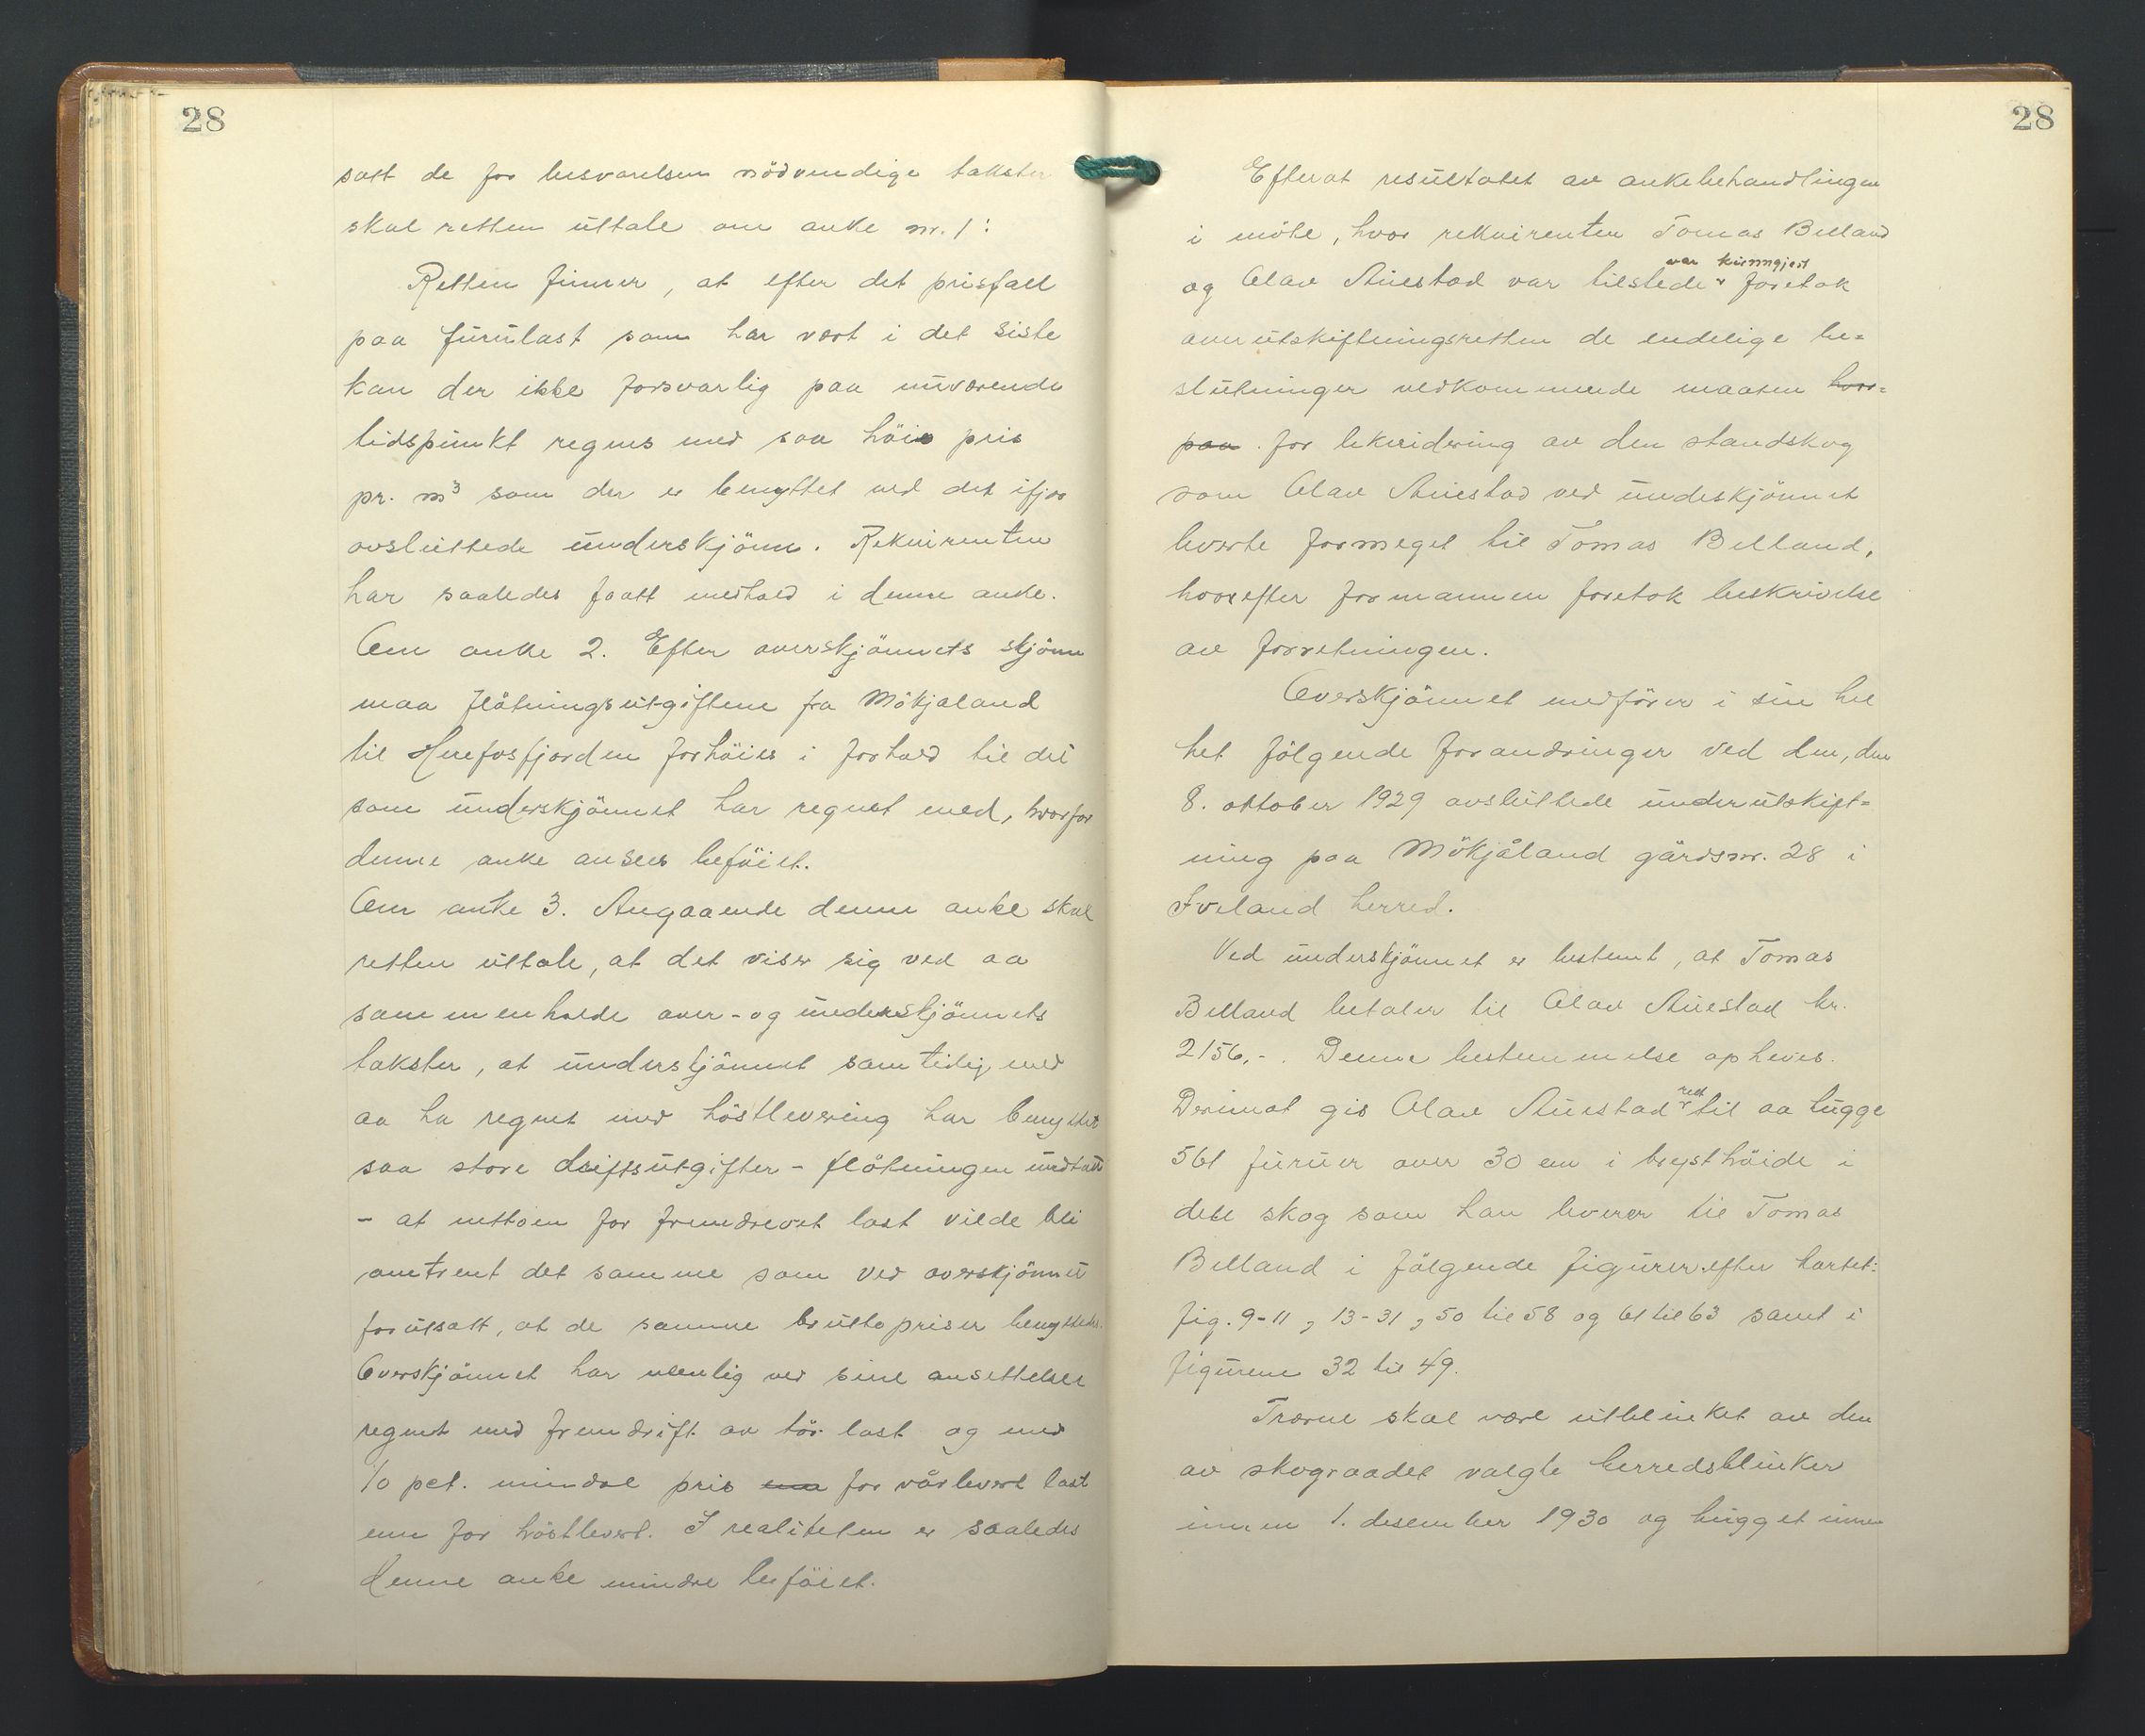 28
satt de for besvarelsen nödvendige takster
skal retten uttale om anke nr. 1:
Retten finner, at efter det prisfall
paa furulast som har vært i det siste
kan der ikke forsvarlig paa nuværende
tidspunkt regnes med saa höi pris
pr. m³ som der er benyttet ved det ifjor
avsluttede underskjönn. Rekvirenten
har saaledes faatt medhold i denne anke.
Om anke 2. Efter overskjönnets skjönn
maa flötningsutgiftene fra Mökjaland
til Herefosfjorden forhöies i forhold til det
som underskjönnet har regnet med, hvorfor
denne anke ansees beföiet.
Om anke 3. Angaaende denne anke skal
retten uttale, at det viser sig ved aa
sammenholde over- og underskjönnets
takster, at underskjönnet samtidig med
aa ha regnet med höstlevering har benyttet
saa store driftsutgifter - flötningen undtatt
- at nettoen for fremdrevet last vilde bli
omtrent det samme som ved overskjönnet
forutsatt, at de samme bruttopriser benyttedes.
Overskjönnet har nemlig ved sine ansettelser
regnet med fremdrift av tör last og med
10 pct. mindre pris for vårlevert last
enn for höstlevert. I realiteten er saaledes
denne anke mindre beföiet.
28
Efterat resultatet av ankebehandlingen
i möte, hvor rekvirenten Tomas Belland
var kunngjort
og Olav Auestad var tilstede foretok
overutskiftningsretten de endelige be=
slutninger vedkommende maaten hvor=
paa for likvidering av den standskog
som Olav Auestad ved underskjönnet
leverte formeget til Tomas Belland,
hvorefter formannen foretok beskrivelse
av forretningen.
Overskjönnet medförer i sin hel
het fölgende forandringer ved den, den
8. oktober 1929 avsluttede underutskift=
ning paa Mökjåland gårdsnr. 28 i
Iveland herred.
Ved underskjönnet er bestemt, at Tomas
Belland betaler til Olav Auestad kr.
2156,-. Denne bestemmelse opheves.
rett
Derimot gis Olav Auestad til aa hugge
561 furuer over 30 cm i brysthöide i
den skog som han leverer til Tomas
Belland i fölgende figurer efter kartet:
fig. 9-11, 13-31, 50 til 58 og 61 til 63 samt i
figurene 32 til 49.
Trærne skal være utblinket av den
av skograadet valgte herredsblinker
innen 1. desember 1930 og hugget innen